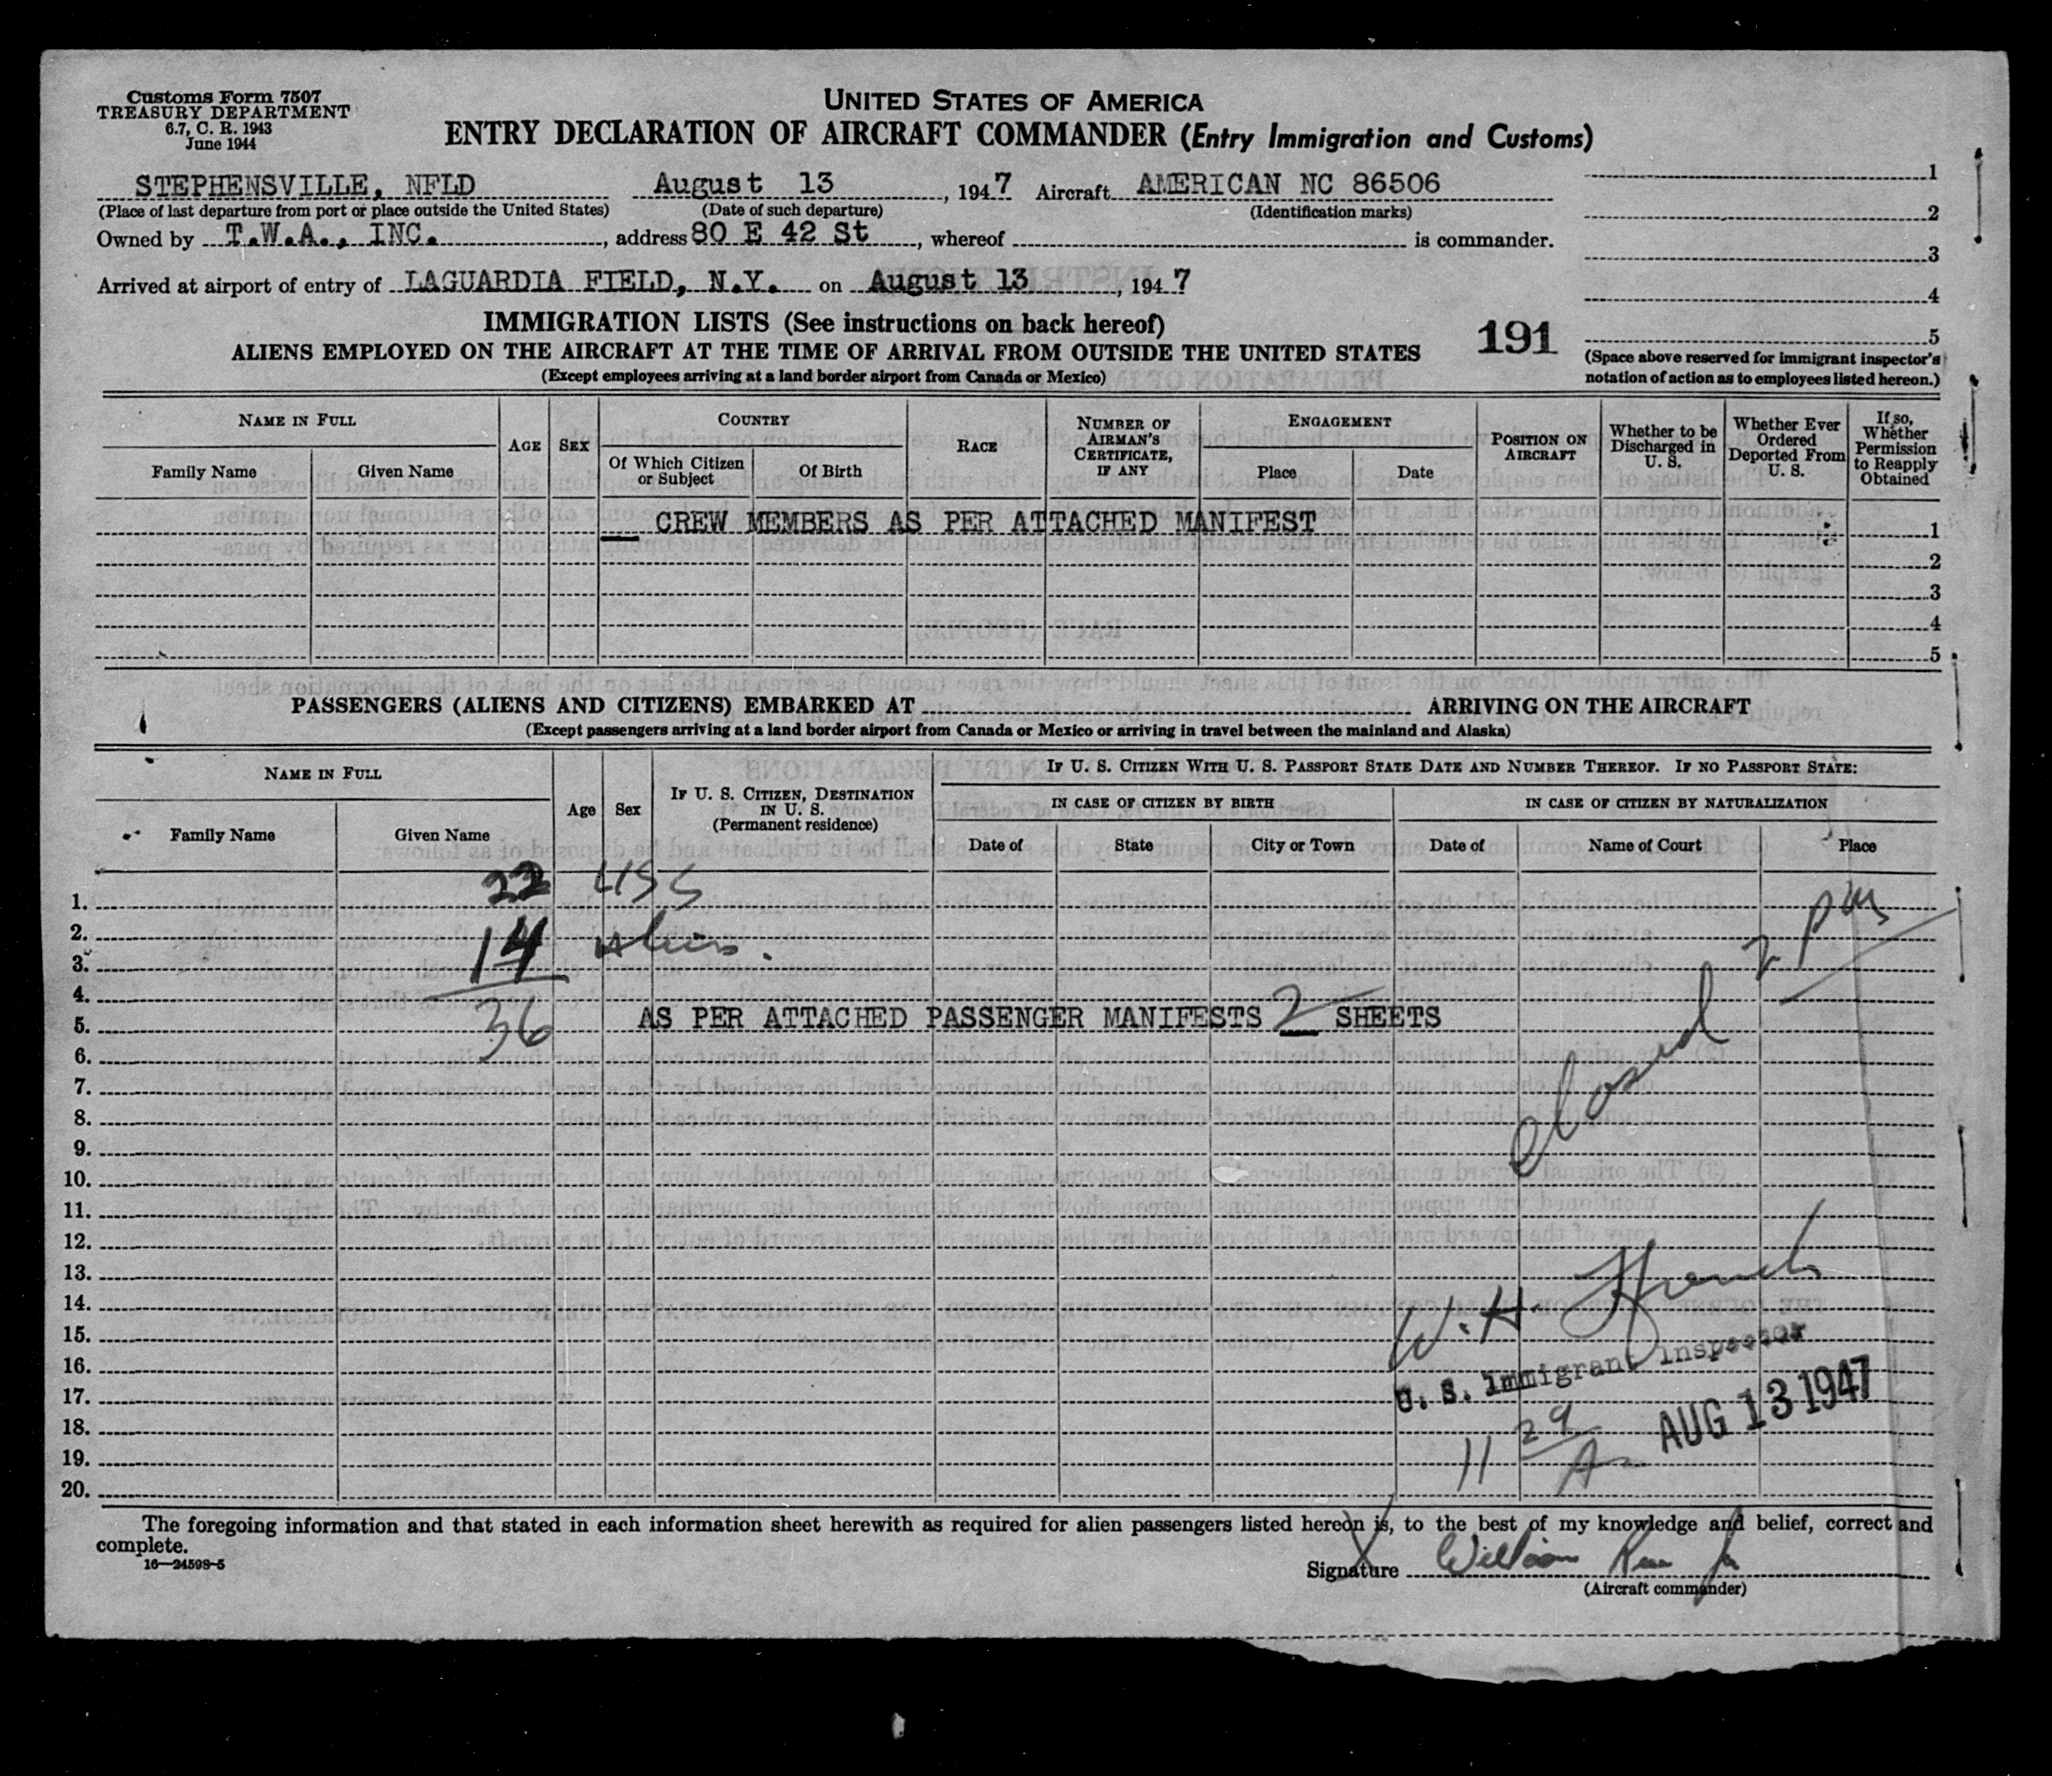 Customs Form 7507
TREASURY DEPARTMENT
6.7, C. R. 1943
June 1944
UNITED STATES OF AMERICA
ENTRY DECLARATION OF AIRCRAFT COMMANDER (Entry Immigration and Customs)
STEPHENSVILLE, NFLD August 13, 1947 Aircraft AMERICAN NC 86506
(Place of last departure from port or place outside the United States) (Date of such departure) (Identification marks)
Owned by T.W.A., INC., address 80 E 42 St, whereof is commander.
Arrived at airport of entry of LAGUARDIA FIELD, N.Y. on August 13, 1947
1
2
3
4
5
(Space above reserved for immigrant inspector's
notation of action as to employees listed hereon.)
IMMIGRATION LISTS (See instructions on back hereof)
191
ALIENS EMPLOYED ON THE AIRCRAFT AT THE TIME OF ARRIVAL FROM OUTSIDE THE UNITED STATES
(Except employees arriving at a land border airport from Canada or Mexico)
NAME IN FULL
Family Name Given Name
AGE
SEX
COUNTRY
Of Which Citizen or Subject
Of Birth
RACE
NUMBER OF AIRMAN'S CERTIFICATE, IF ANY
ENGAGEMENT
Place Date
POSITION ON AIRCRAFT
Whether to be Discharged in U. S.
Whether Ever Ordered Deported From U. S.
If so, Whether Permission to Reapply Obtained
CREW MEMBERS AS PER ATTACHED MANIFEST 1
2
3
4
5
PASSENGERS (ALIENS AND CITIZENS) EMBARKED AT ARRIVING ON THE AIRCRAFT
(Except passengers arriving at a land border airport from Canada or Mexico or arriving in travel between the mainland and Alaska)
NAME IN FULL
Family Name Given Name
Age
Sex
IF U. S. CITIZEN, DESTINATION IN U. S.
(Permanent residence)
IF U. S. CITIZEN WITH U. S. PASSPORT STATE DATE AND NUMBER THEREOF. IF NO PASSPORT STATE:
IN CASE OF CITIZEN BY BIRTH IN CASE OF CITIZEN BY NATURALIZATION
Date of State City or Town Date of Name of Court Place
1. 22
2. 14
3.
4.
5. 36 AS PER ATTACHED PASSENGER MANIFESTS 2 SHEETS
6.
7.
8.
9.
10.
11.
12.
13.
14.
15.
16.
17.
18.
19.
20.
closed 2 pm
W. H. French
U. S. Immigrant Inspector
AUG 13 1947
11 29 A
The foregoing information and that stated in each information sheet herewith as required for alien passengers listed hereon is, to the best of my knowledge and belief, correct and
complete.
16—24598-5
Signature William
(Aircraft commander)